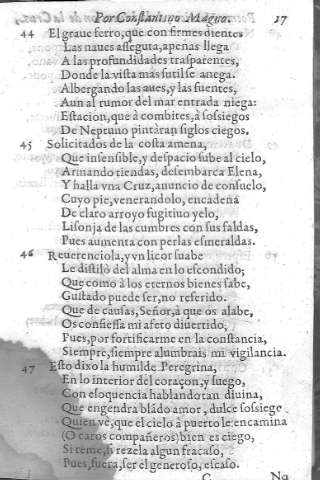 Por Constantino Magno. 17
44 El graue ferro, que con firmes dientes
Las naues assegura, apenas llega
A las profundidades trasparentes,
Donde la vista mas sutil se anega.
Albergando las aues, y las fuentes,
Aun al rumor del mar entrada niega:
Estacion, que à combites, à sossiegos
De Neptuno pintàran siglos ciegos.
45 Solicitados de la costa amena,
Que insensible, y despacio sube al cielo,
Armando tiendas, desembarca Elena,
Y halla vna Cruz, anuncio de consuelo,
Cuyo pie, venerandolo, encadena
De claro arroyo fugitiuo yelo,
Lisonja de las cumbres con sus faldas,
Pues aumenta con perlas esmeraldas.
46 Reuerenciola, y vn licor suabe
Le distilò del alma en lo escondido;
Que como à los eternos bienes sabe,
Gustado puede ser, no referido.
Que de causas, Señor, à que os alabe,
Os confiessa mi afeto diuertido,
Pues, por fortificarme en la constancia,
Siempre, siempre alumbrais mi vigilancia.
47 Esto dixo la humilde Peregrina,
En lo interior del coraçon, y luego,
Con eloquencia hablando tan diuina,
Que engendra blãdo amor, dulce sossiego
Quien ve, que el cielo à puerto le encamina
(O caros compañeros) bien es ciego,
Si teme, si rezela algun fracaso,
Pues, fuera, ser el generoso, escaso.
C Na